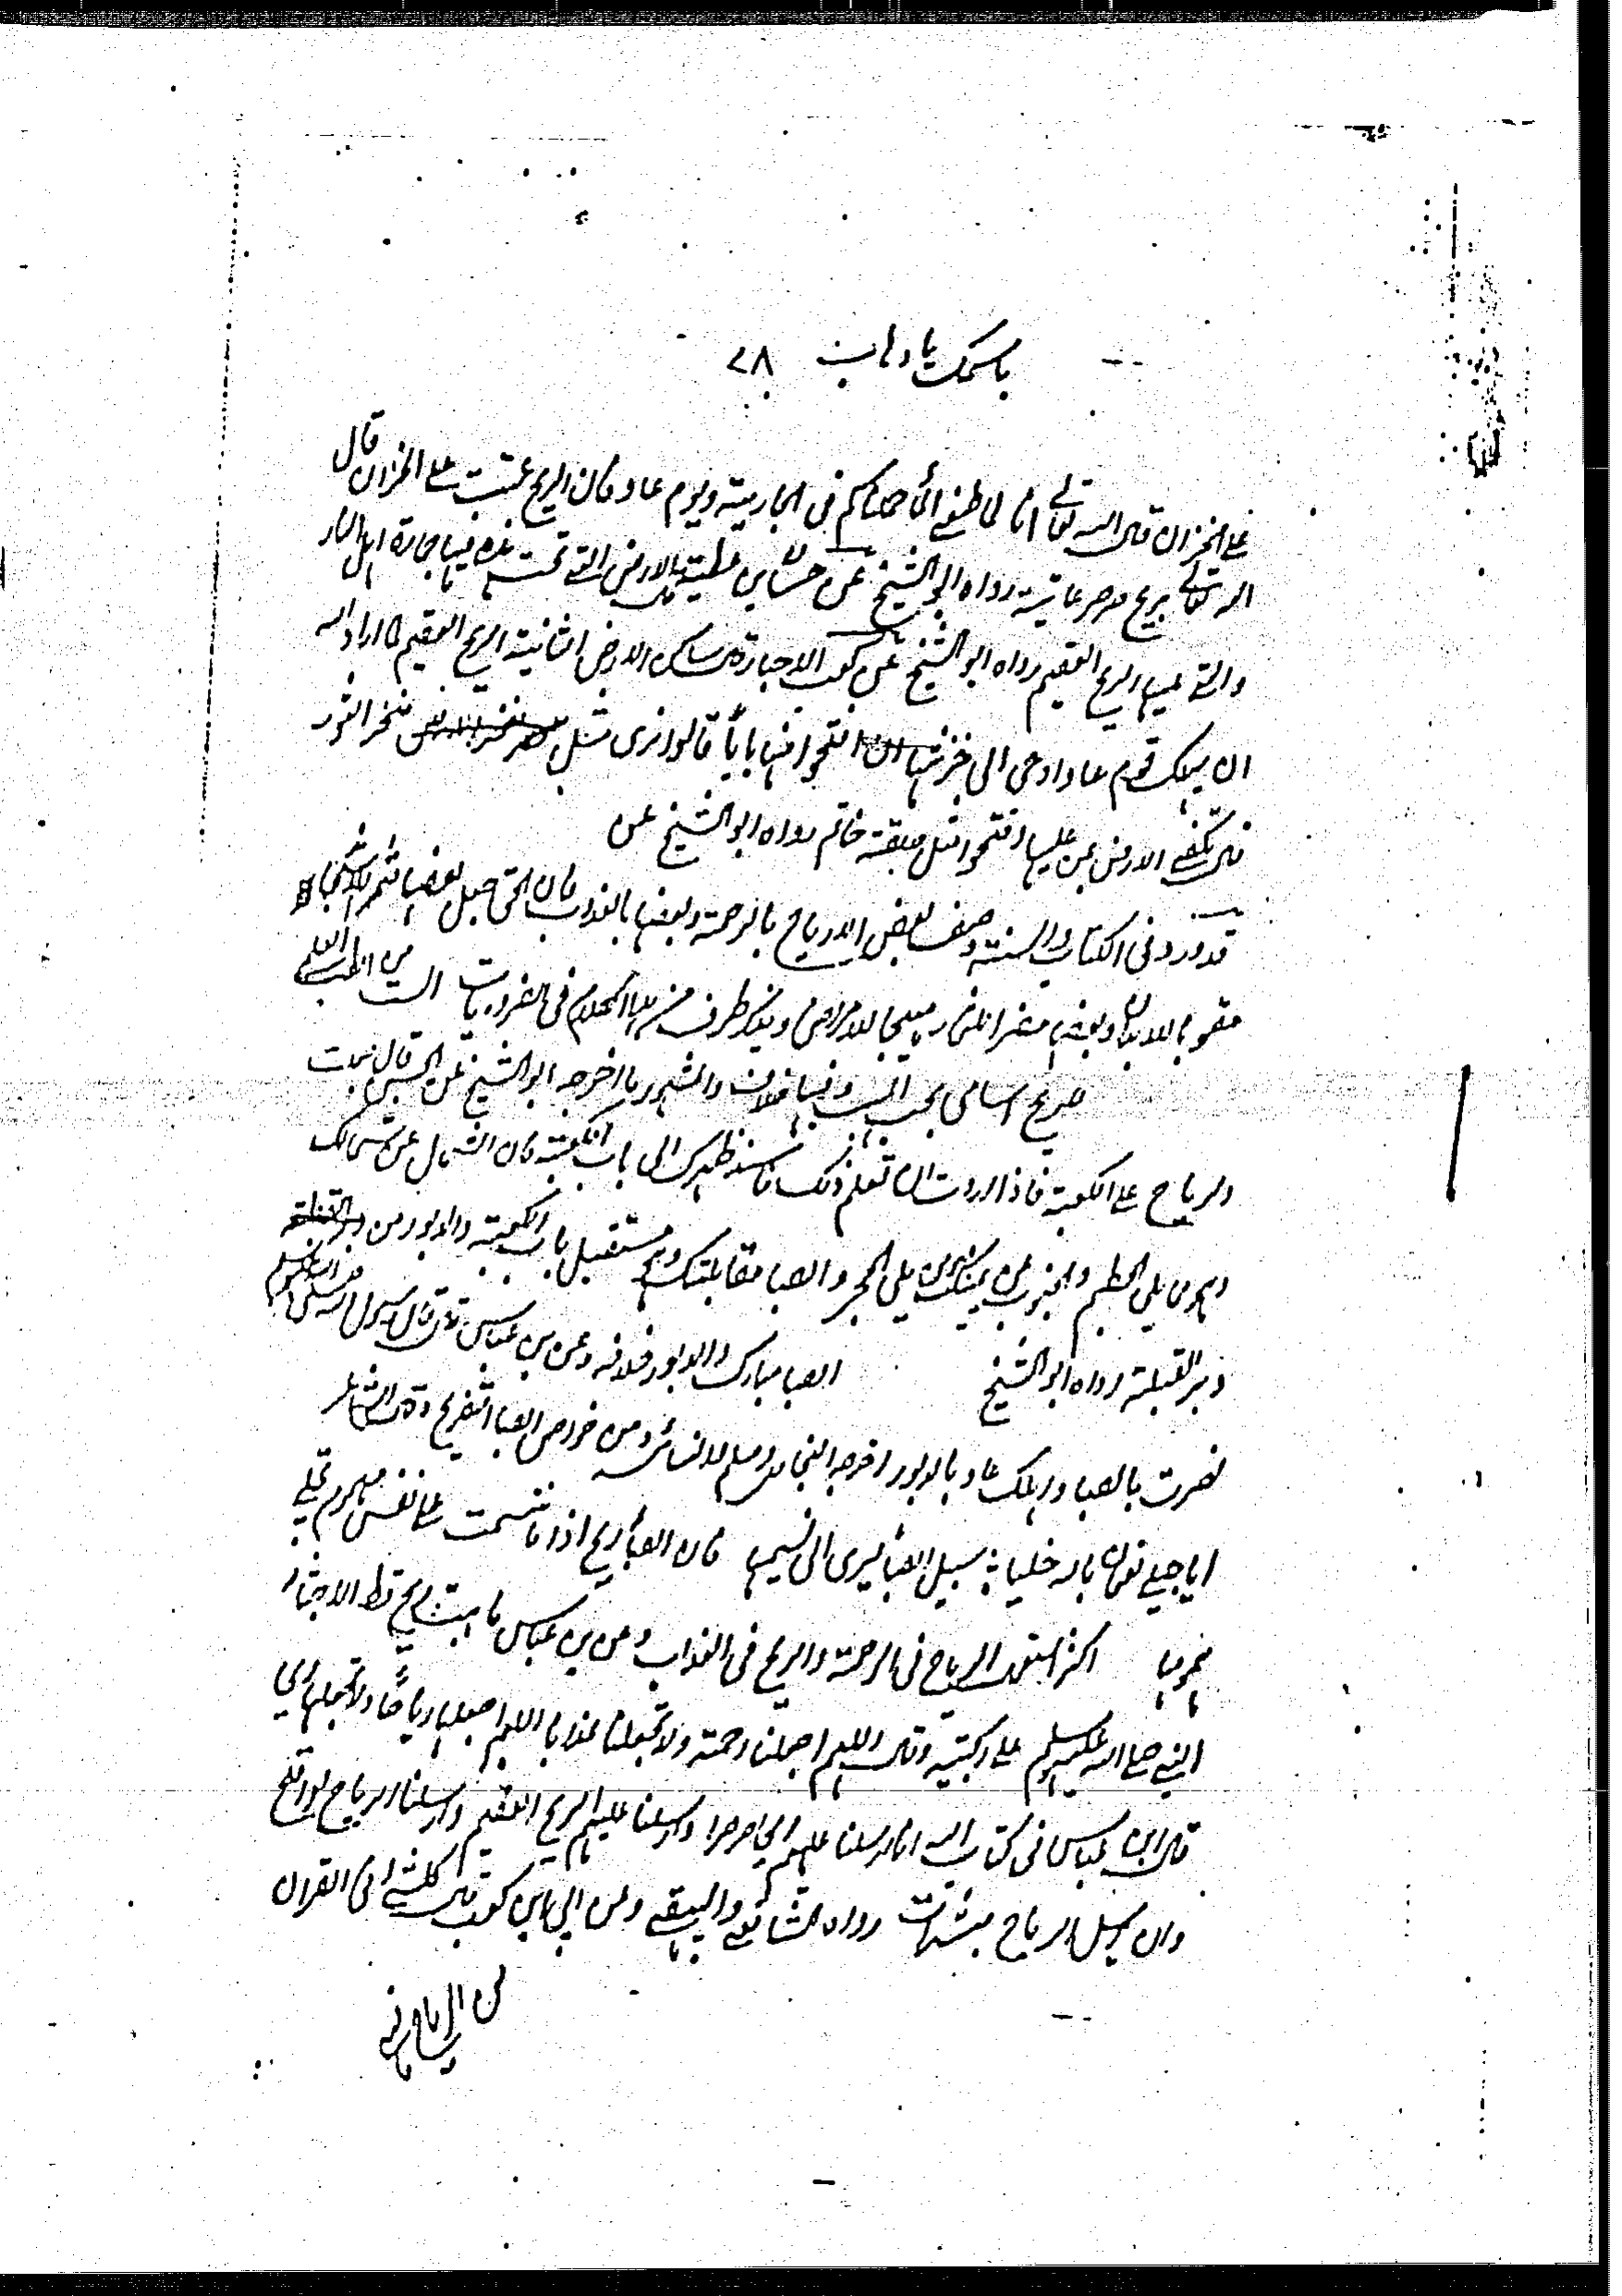 باسمك يا وهاب ٢٨
على الخزان قال الله تعالى انا لما طغى الماء حملناكم فى الجارية ويوم عاد فان الريح عتت على الخزان قال
الله تعالى بريح صرصر عاتية رواه ابو الشيخ عن حسان بن عطية قال الارض التى تحت هذه فيها حجارة اهل النار
والتى تليها الريح العقيم رواه ابو الشيخ عن كعب الاحبار قال ساكن الارض الثانية الريح العقيم لما اراد الله
ان يهلك قوم عاد اوحى الى خزنتها ان افتحوا منها بابا قالوا نرى مثل منخر الثور
قال تكفى الارض بمن عليها افتحوا مثل حلقة خاتم رواه ابو الشيخ عن
قد ورد فى الكتاب والسنة وصف بعض الارياح بالرحمة وبعضها بالعذاب فان الحق جعل بعضها مثمر للاشجار
مقو للابدان وبعضها مضر للثمار مهيجا للامراض ويذكر طرف من هذا الكلام فى الضروريات الست من الطب
للريح اسامى بحسب المهب وفيها خلاف والمشهور ما اخرجه ابو الشيخ عن الحسن قال جعلت
الرياح على الكعبة فاذا اردت ان تعلم ذلك فاسند ظهرك الى باب الكعبة فان الشمال عن شمالك
وهى مما يلى الحطيم والجنوب من يمينك مما يلى الحجر والصبا مقابلتك وهى مستقبل باب الكعبة والدبور من
دبر القبلة رواه ابو الشيخ الصبا مبارك والدبور خلافه وعن بن عباس قال قال رسول الله صلى الله عليه وسلم
نصرت بالصبا واهلك عاد بالدبور اخرجه البخارى ومسلم والنسائى ومن خواص الصبا التفريح وقال الشاعر
ايا جبلى نعمان بالله خليا سبيل الصبا يسرى الى نسيمها فان الصبا ريح اذا ما تنسمت على نفس مهموم تجلى
همومها اكثر استعمال الرياح فى الرحمة والريح فى العذاب وعن بن عباس ما هبت ريح قط الا جثا
النبى صلى الله عليه وسلم على ركبتيه وقال اللهم اجعلها رحمة ولا تجعلها عذابا اللهم اجعلها رياحا ولا تجعلها ريحا
قال ابن عباس فى كتاب الله انا ارسلنا عليهم ريحا صرصرا وارسلنا عليهم الريح العقيم وارسلنا الرياح لواقح
وان يرسل الرياح مبشرات رواه الشافعى والبيهقى وعن ابى بن كعب قال كل شئ فى القران
من الرياح فهى